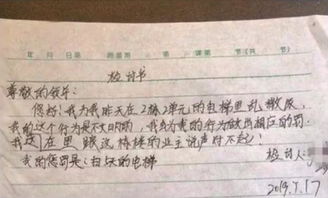 年 月 日 第 周星期 第 课第 节(共 节)
检讨书
尊敬的领导:
您好!我为我昨天在2栋2单元的电梯里乱撒尿,
我的这个行为是不文明的,我会为我的行为做出相应的罚.
我 在里 跟这栋楼的业主说声对不起!
我的惩罚是:扫 天的电梯
检讨人:
2019.7.17